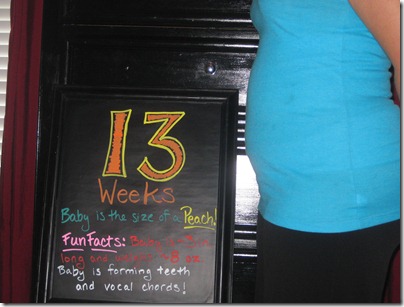 13
Weeks
Baby is the size of a Peach!
Fun Facts: Baby is
long and 8 oz
Baby is forming teeth
and vocal chords!